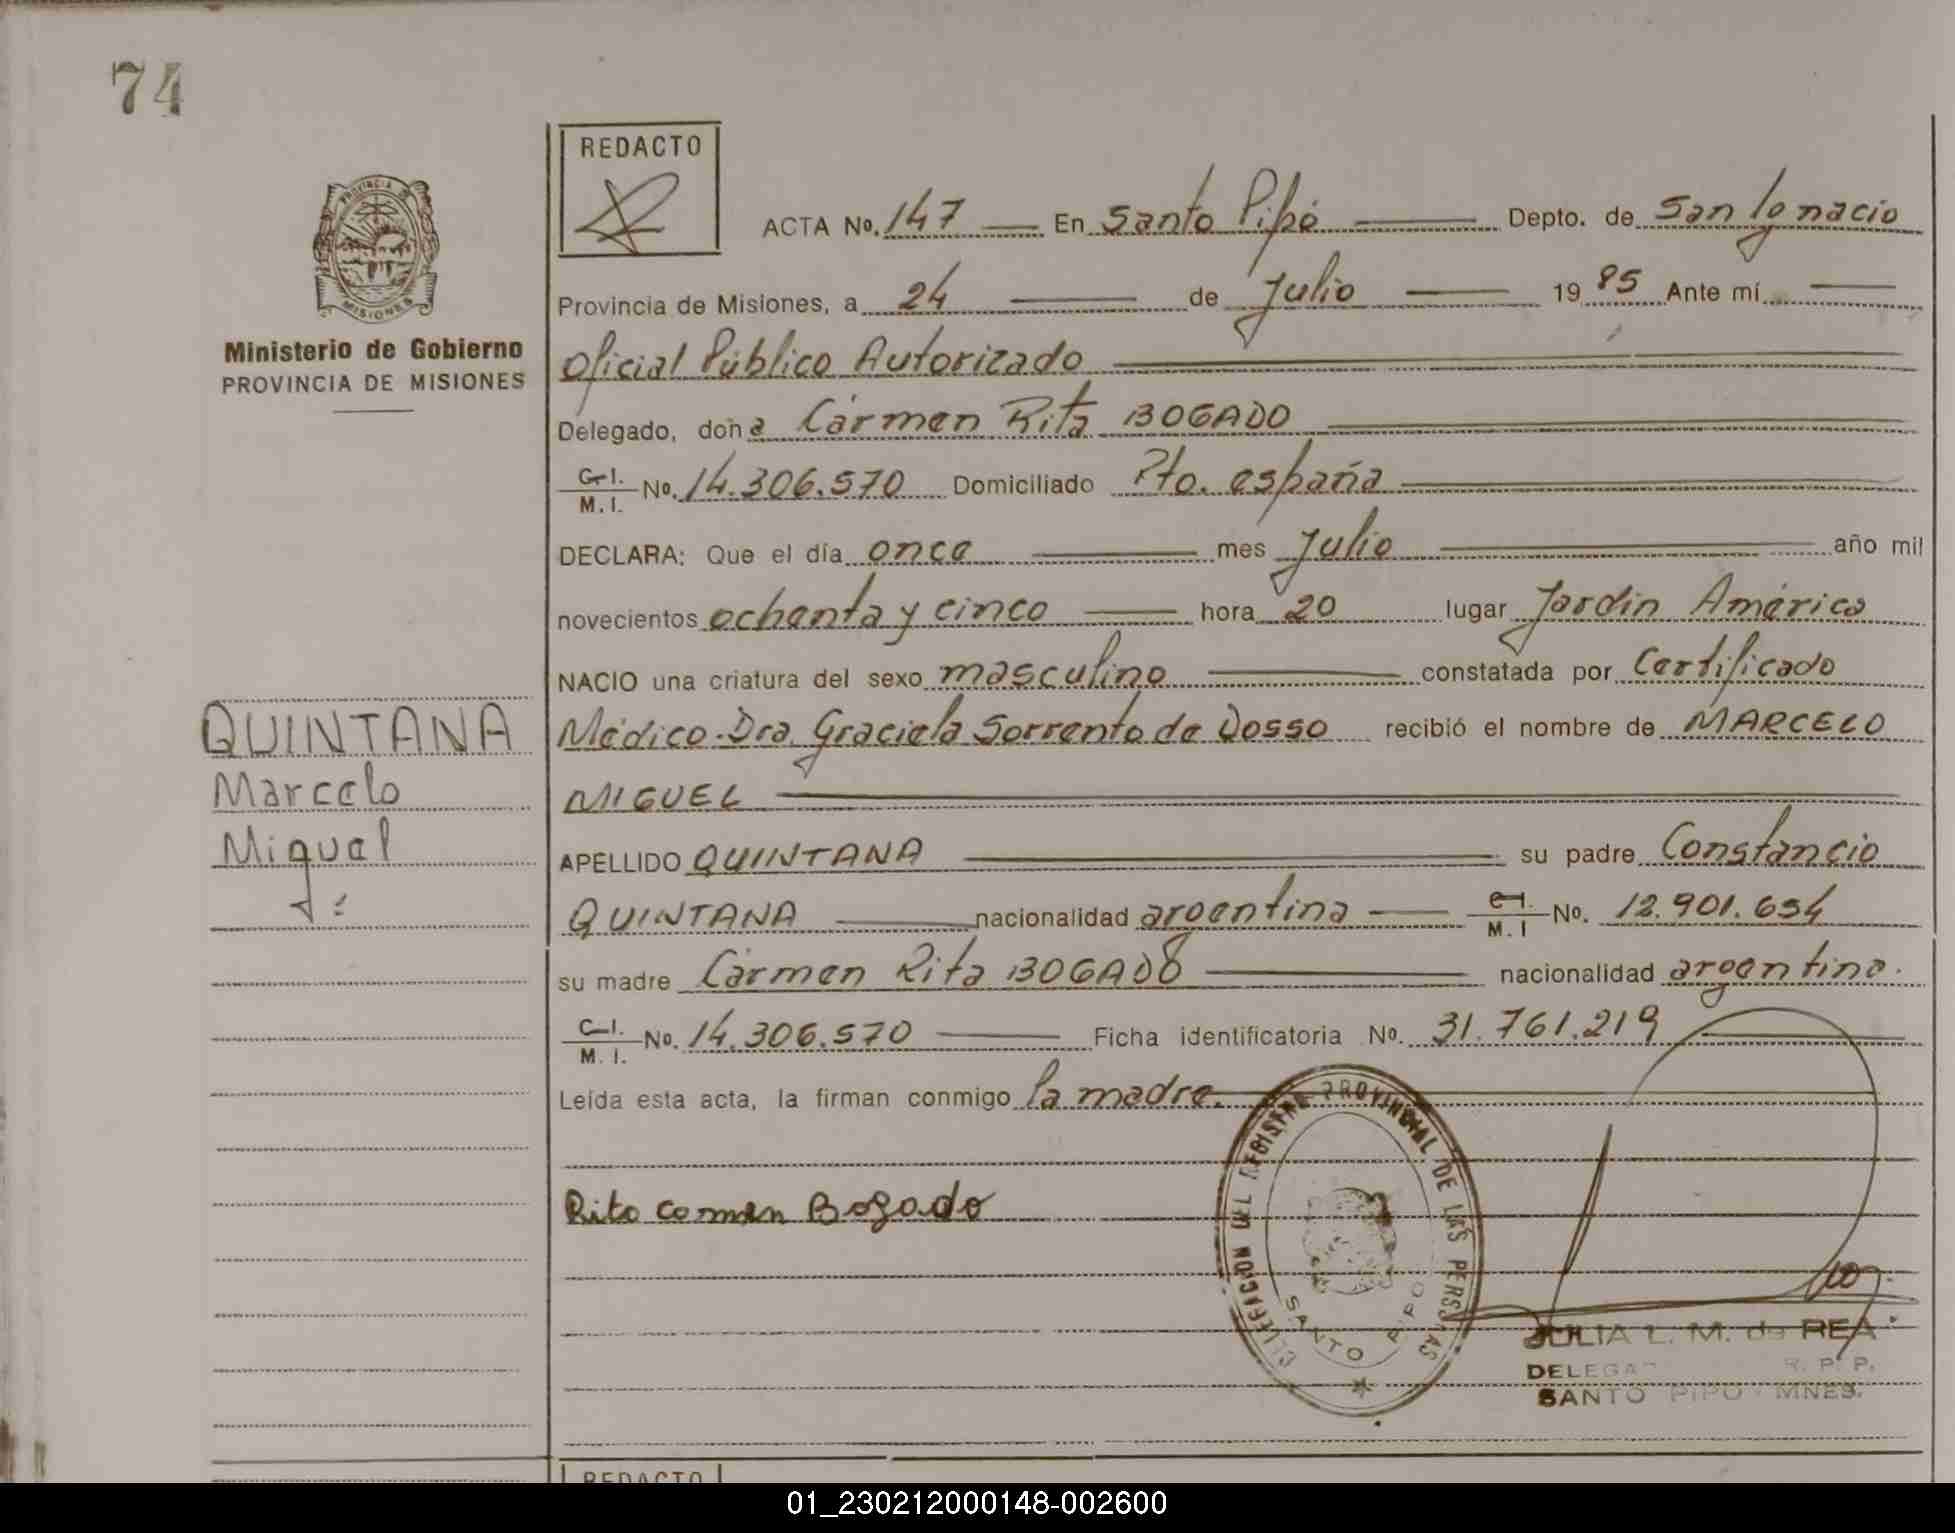 74
REDACTO
PROVINCIA DE
MISIONES
Ministerio de Gobierno
PROVINCIA DE MISIONES
QUINTANA
Marcelo
Miguel
ACTA No. 147 En Santo Pipó Depto. de San Ignacio
Provincia de Misiones, a 24 de Julio 1985 Ante mí
Oficial Público Autorizado
Delegado, doña Cármen Rita BOGADO
C.I. M.I. No. 14.306.570 Domiciliado Pto. españa
DECLARA: Que el día once mes Julio año mil
novecientos ochenta y cinco hora 20 lugar Jardín América
NACIO una criatura del sexo masculino constatada por Certificado
Médico-Dra. Graciela Sorrento de Dosso recibió el nombre de MARCELO
MIGUEL
APELLIDO QUINTANA su padre Constancio
QUINTANA nacionalidad argentina C.I. M.I No. 12.901.654
su madre Cármen Rita BOGADO nacionalidad argentina.
C.I. M.I. No. 14.306.570 Ficha identificatoria No. 31.761.219
Leída esta acta, la firman conmigo la madre.
Rita Carmen Bogado
DELEGACION DEL REGISTRO PROVINCIAL DE LAS PERSONAS
SANTO PIPO
JULIA L. M. de REA
R. P. P.
SANTO PIPO - MNES.
REDACTO
01_230212000148-002600